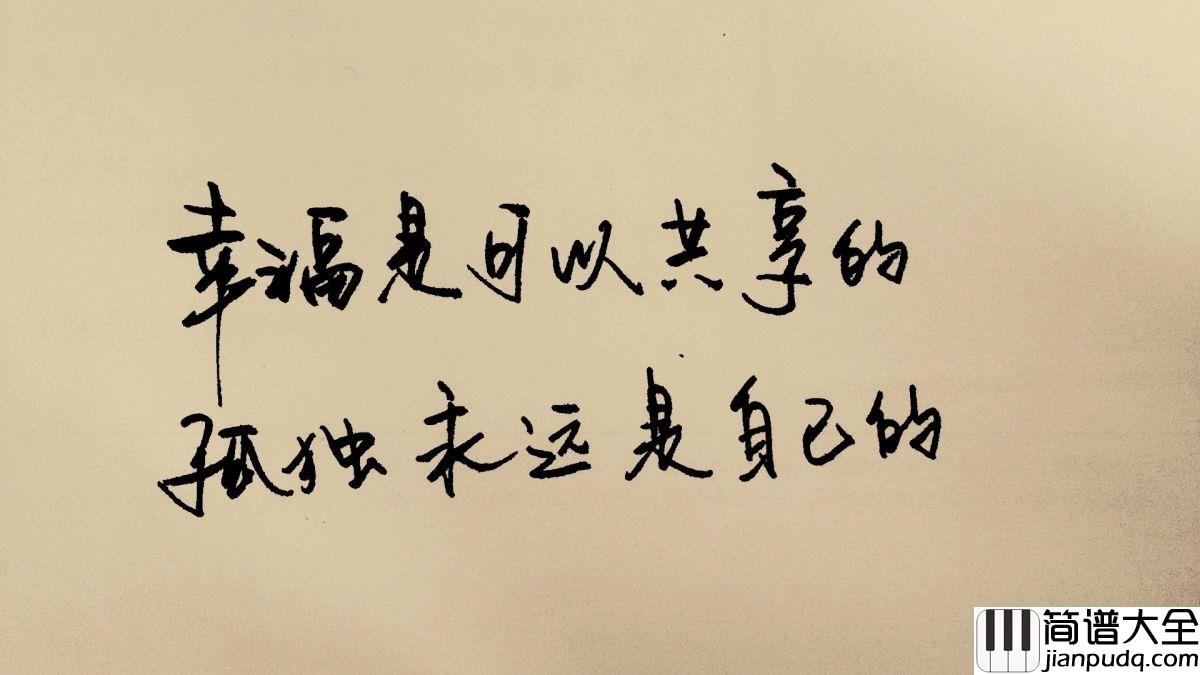 幸福是可以共享的
孤独永远是自己的
简谱大全
jianpudq.com